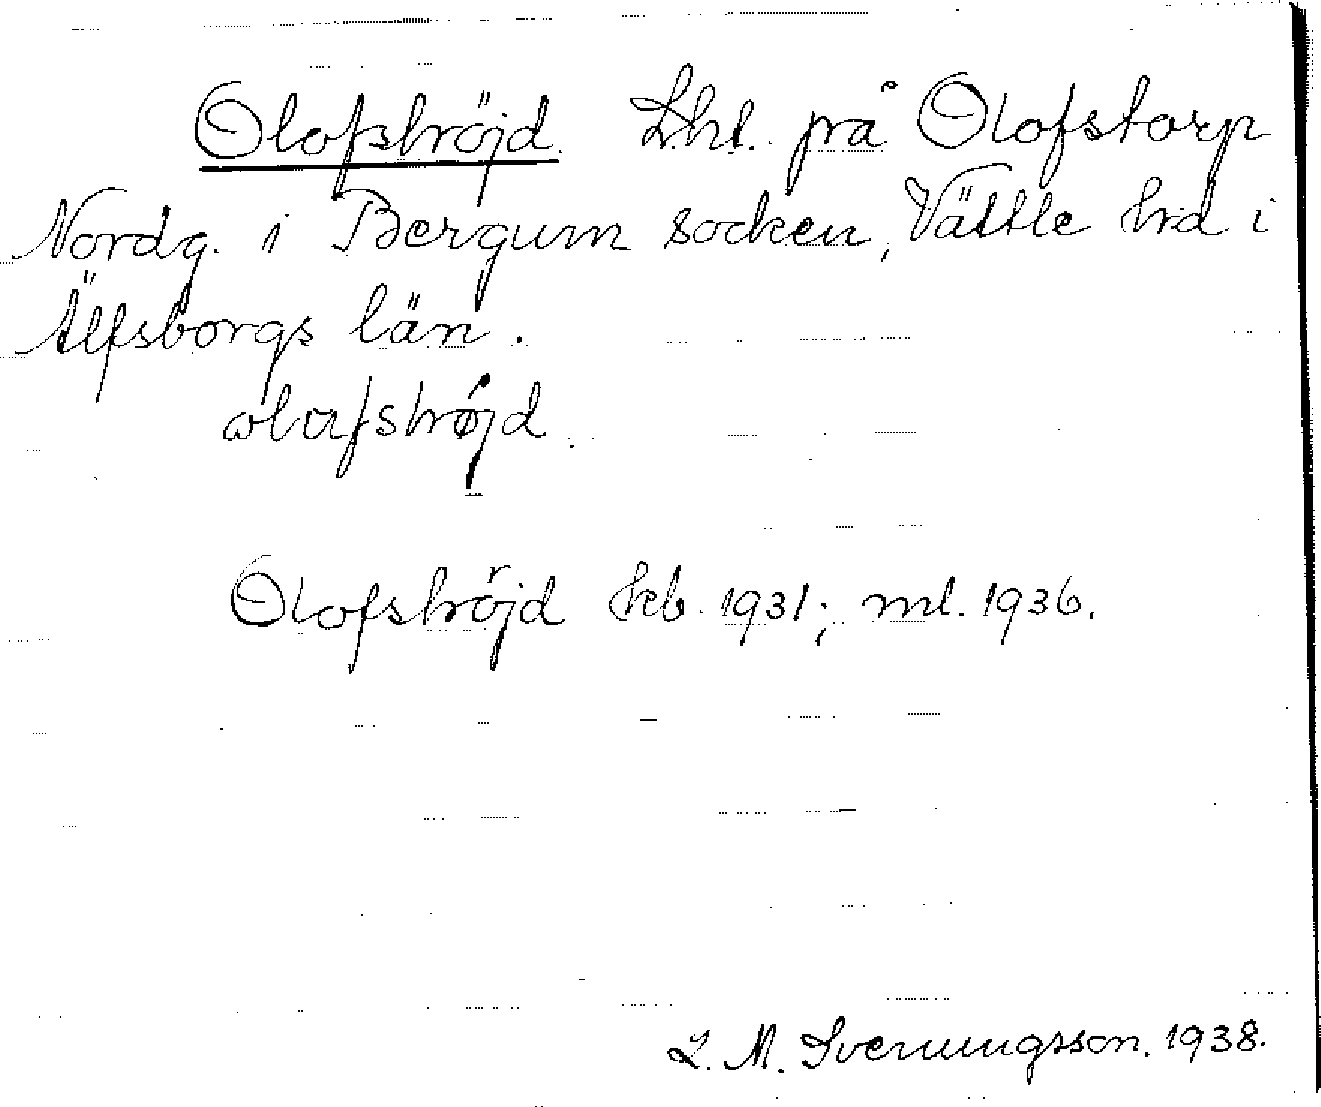 Olofshöjd. Lht. på Olofstorp
Nordg. i Bergum socken, Vättle hd i
Älfsborgs län.
ωlafshøjd.
Olofshöjd hfb. 1931; ml. 1936.
L. M. Svenungsson. 1938.